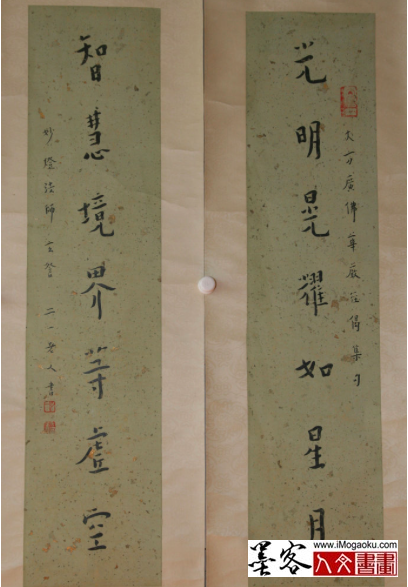 光明晃耀如星月
大方廣佛華嚴經偈集句
智慧境界等虛空
妙燈法師玄詧 二一老人書
www.iMogaoku.com
墨客人文書畫